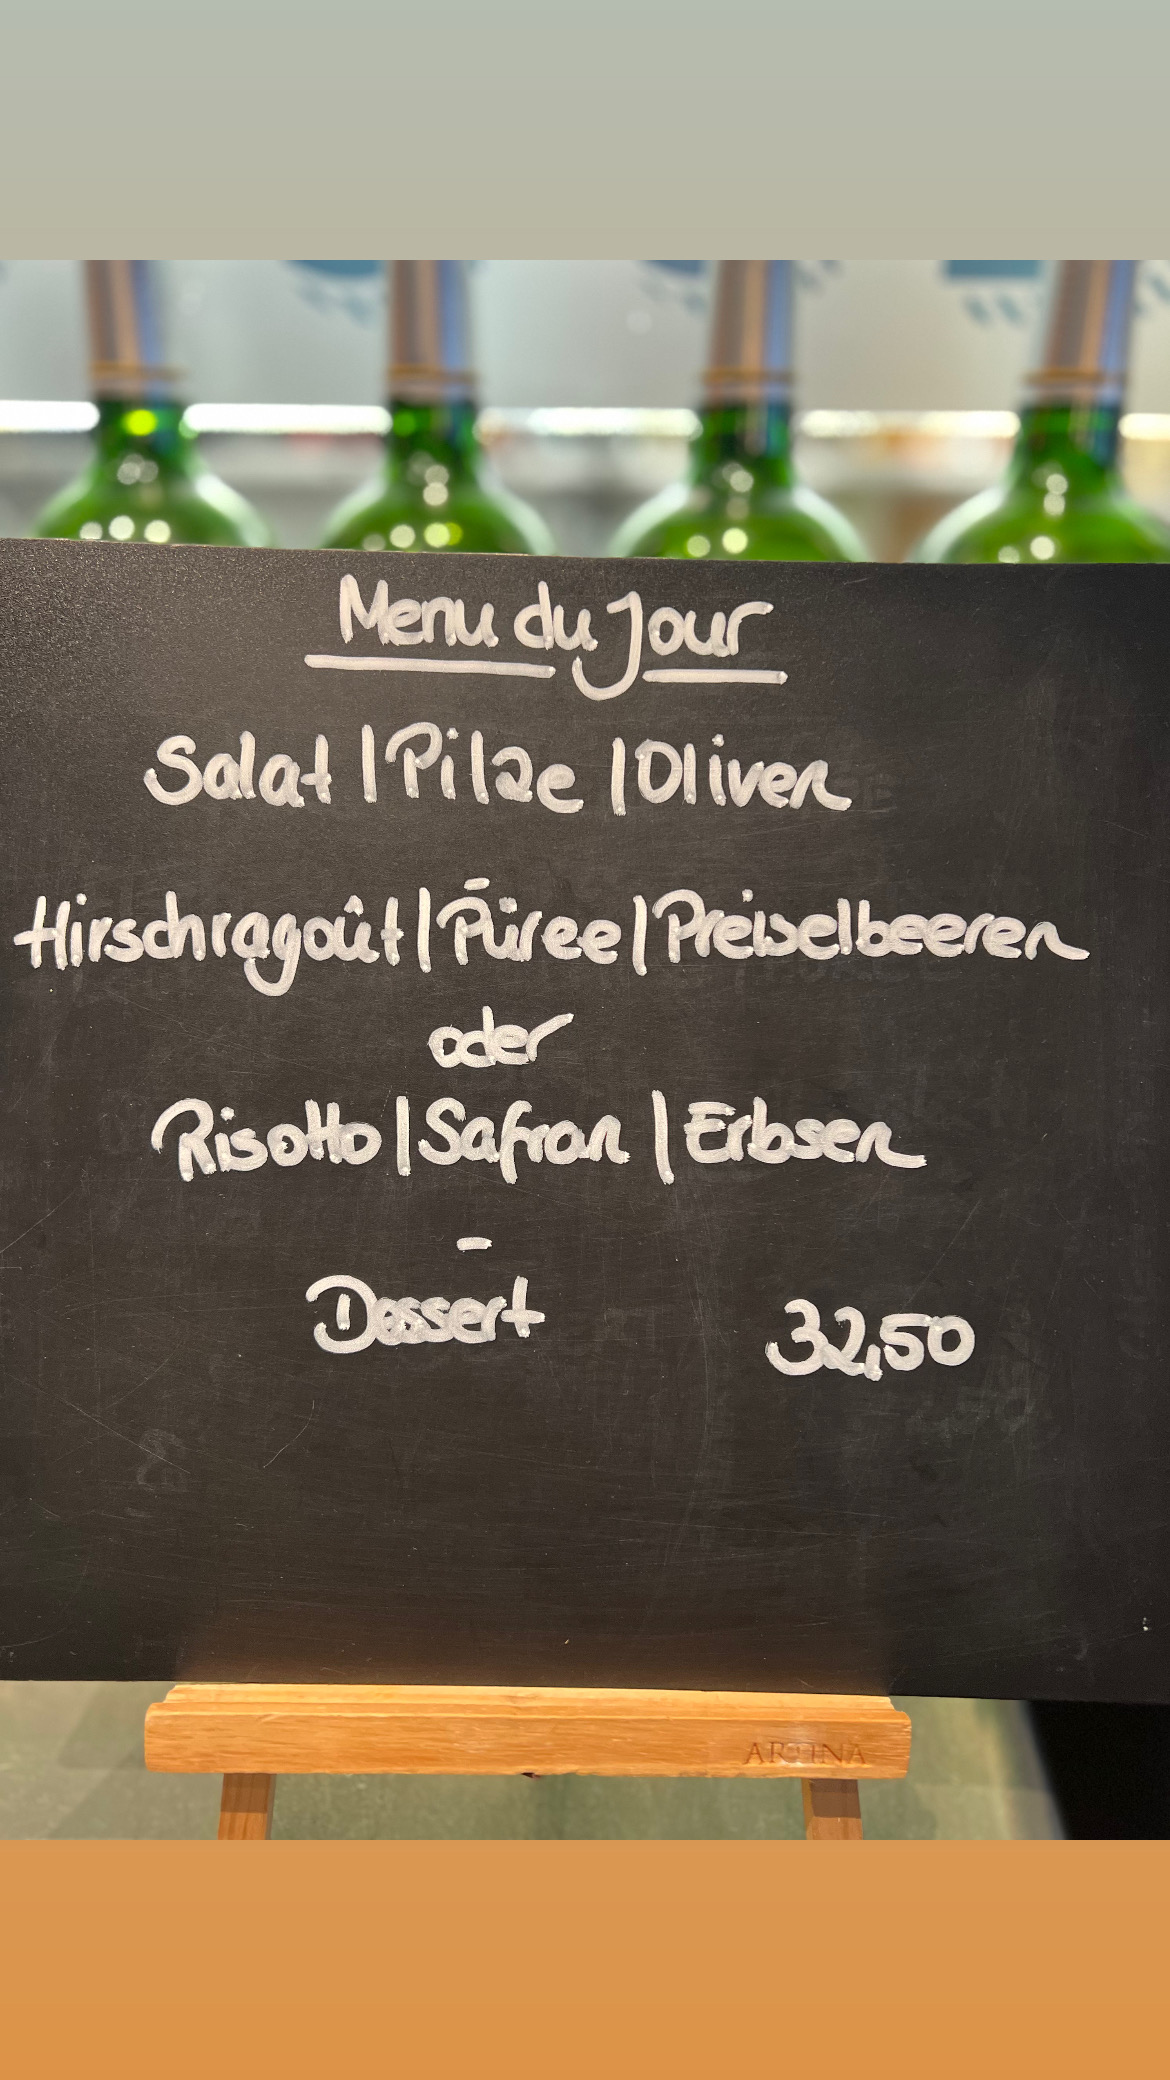 Menu du Jour
Salat | Pilze | Oliven
-
Hirschragoût | Püree | Preiselbeeren
oder
Risotto | Safran | Erbsen
-
Dessert 32,50
ARTINA